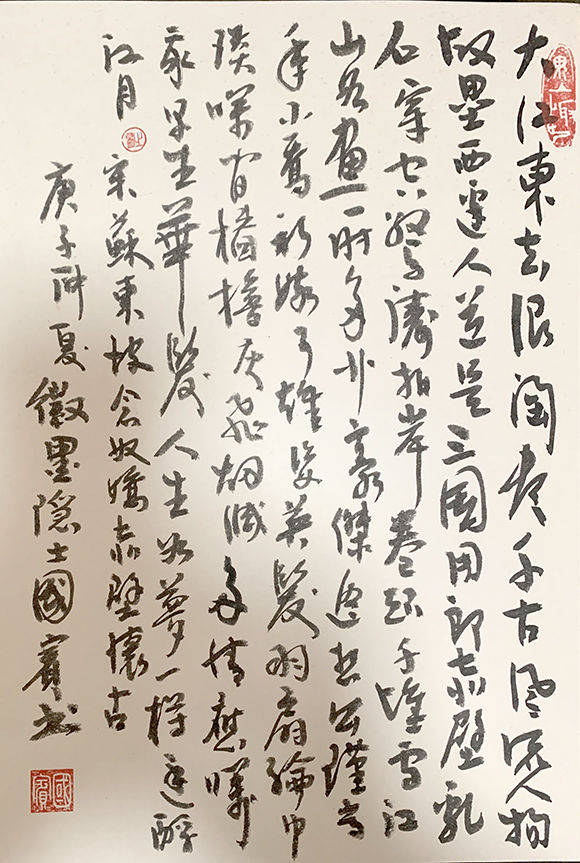 大江東去浪淘尽千古風流人物
故壘西邊人道是三国周郎赤壁乱
石穿空驚濤拍岸卷起千堆雪江
山如畫一時多少豪傑遥想公瑾當
年小喬初嫁了雄姿英發羽扇綸巾
談咲间檣櫓灰飛烟滅多情應
我早生華髮人生如夢一樽還酹
江月
宋蘇東坡念奴嬌赤壁懷古
庚子仲夏徽墨隱士國賓书
國賓